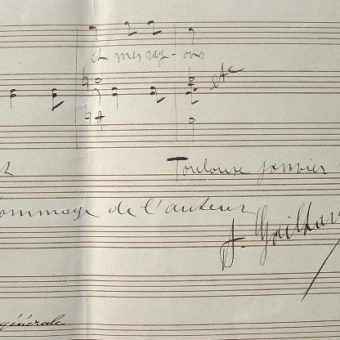 et mes ray-ons
etc
Toulouse janvier
ommage de l'auteur
générale